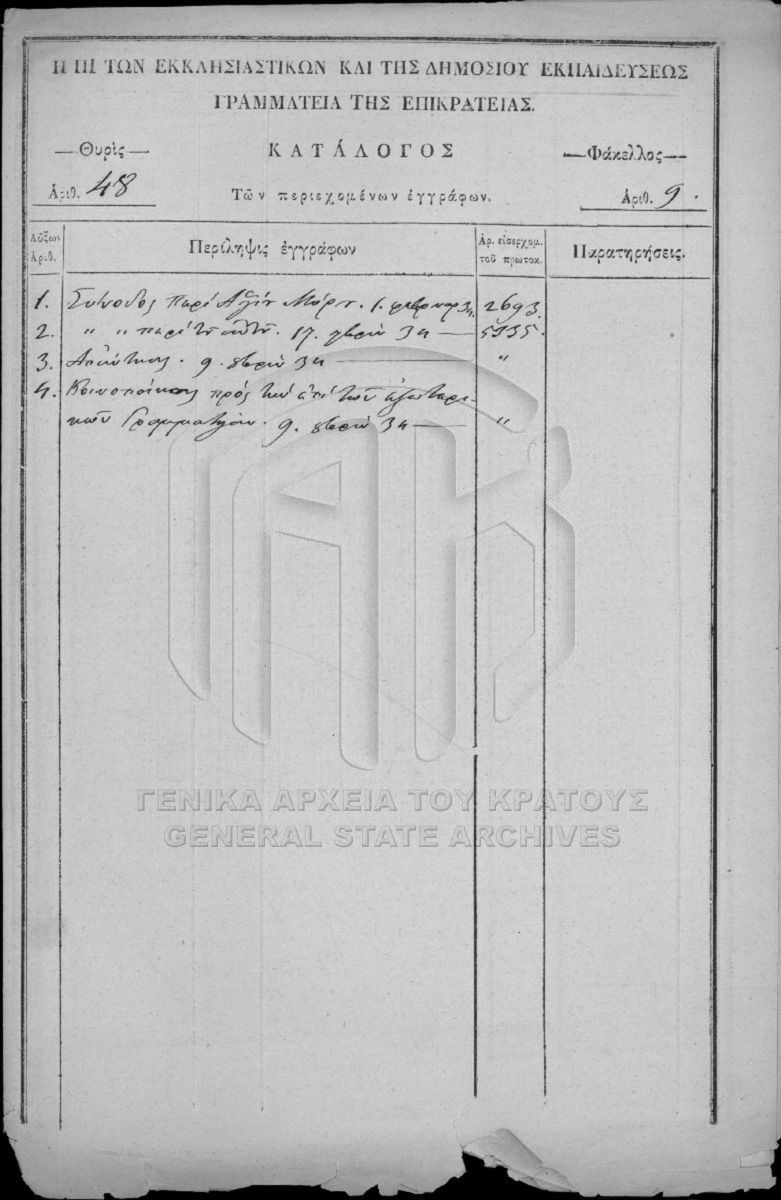 Η ΕΠΙ ΤΩΝ ΕΚΚΛΗΣΙΑΣΤΙΚΩΝ ΚΑΙ ΤΗΣ ΔΗΜΟΣΙΟΥ ΕΚΠΑΙΔΕΥΣΕΩΣ
ΓΡΑΜΜΑΤΕΙΑ ΤΗΣ ΕΠΙΚΡΑΤΕΙΑΣ.
—Θυρὶς—
Ἀριθ. 48
ΚΑΤΑΛΟΓΟΣ
Τῶν περιεχομένων ἐγγράφων.
—Φάκελλος—
Ἀριθ. 9.
Αὔξων Ἀριθ.
Περίληψις ἐγγράφων
Ἀρ. εἰσερχομ. τοῦ πρωτοκ.
Παρατηρήσεις.
1. Σύνοδος περὶ 1. φεβρουαρ 34. 2693.
2. " " περὶ τοῦ αὐτοῦ. 17. 34 — 5935.
3. Ἀπάντησις. 9. 34 — "
4. Κοινοποίησις πρὸς τὴν ἐπὶ τῶν ἐξωτερι-
κῶν Γραμματείαν. 9. 34 — "
ΓΕΝΙΚΑ ΑΡΧΕΙΑ ΤΟΥ ΚΡΑΤΟΥΣ
GENERAL STATE ARCHIVES